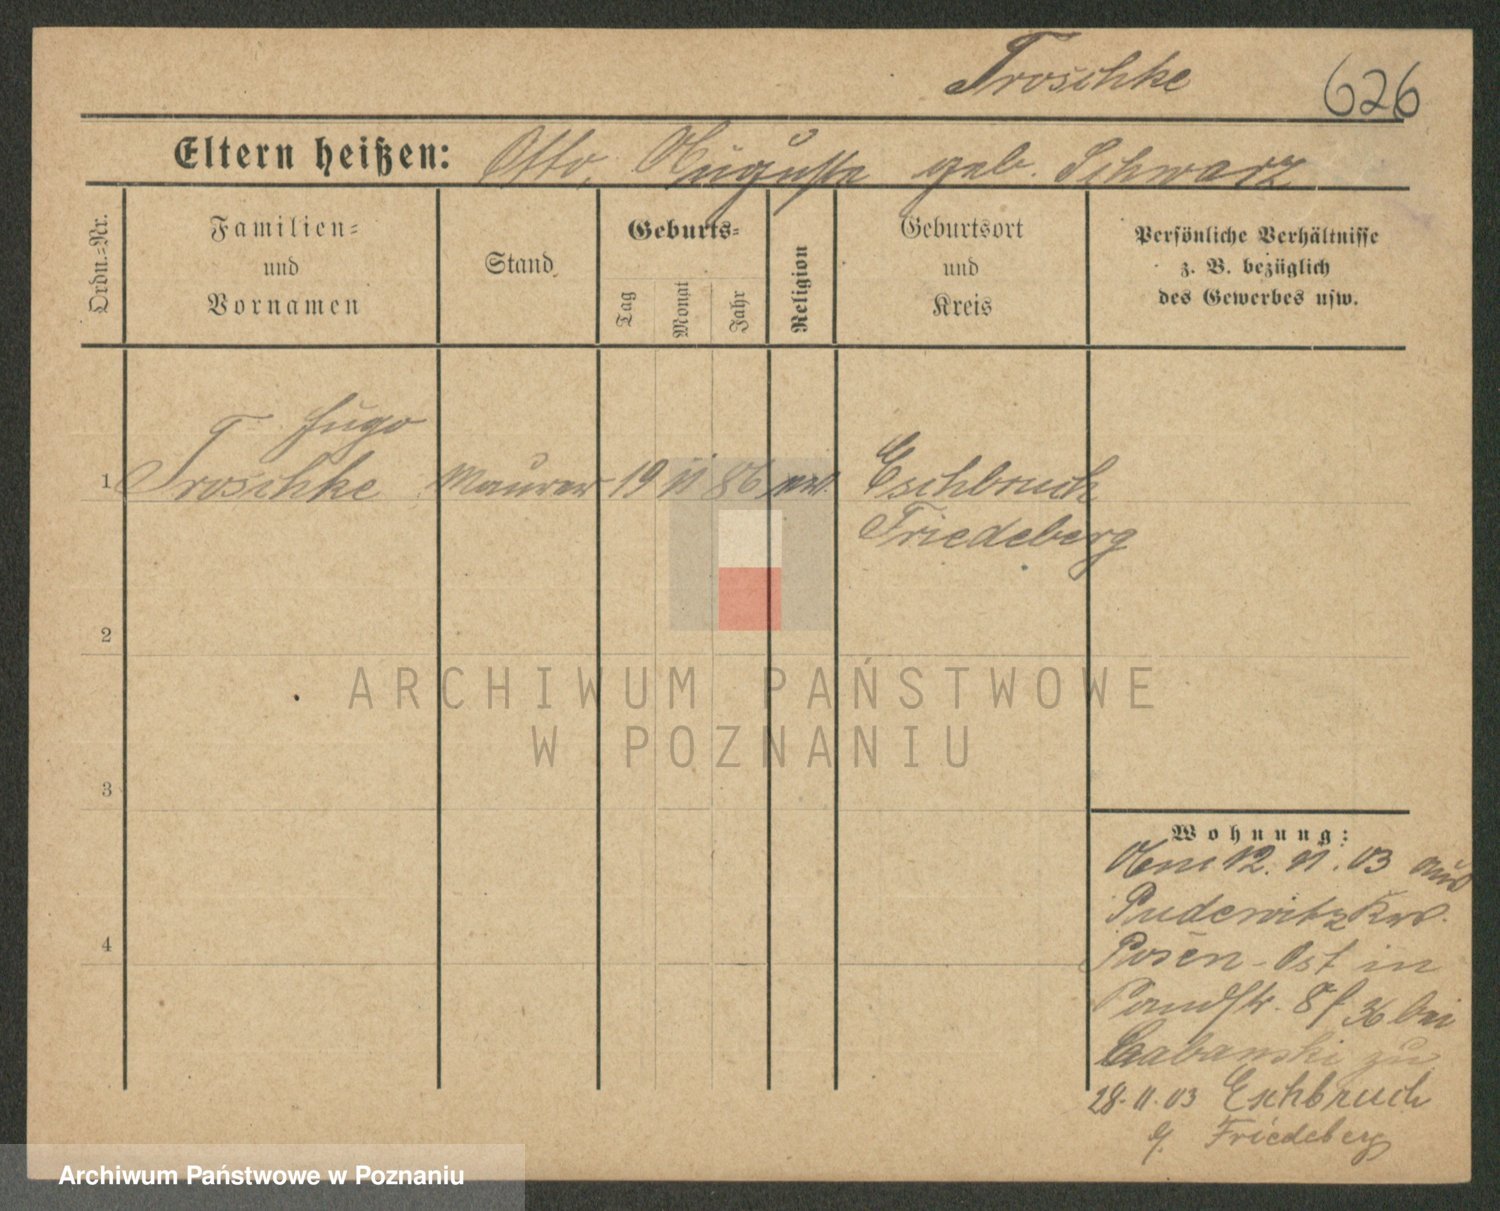 Troschke
626
Eltern heißen: Otto, Auguste geb. Schwarz
Ordn.-Nr.
Familien-
und
Vornamen
Stand
Geburts-
Tag
Monat
Jahr
Religion
Geburtsort
und
Kreis
Persönliche Verhältnisse
z. B. bezüglich
des Gewerbes usw.
Hugo
1 Troschke Maurer 19 11 86 ev. Eschbruch
Friedeberg
2
3
4
Wohnung:
Am 12. 11. 03 aus
Pudewitz Krs.
Posen-Ost in
8 bei
zu
28. 11. 03 Eschbruch
Friedeberg
ARCHIWUM PAŃSTWOWE
W POZNANIU
Archiwum Państwowe w Poznaniu